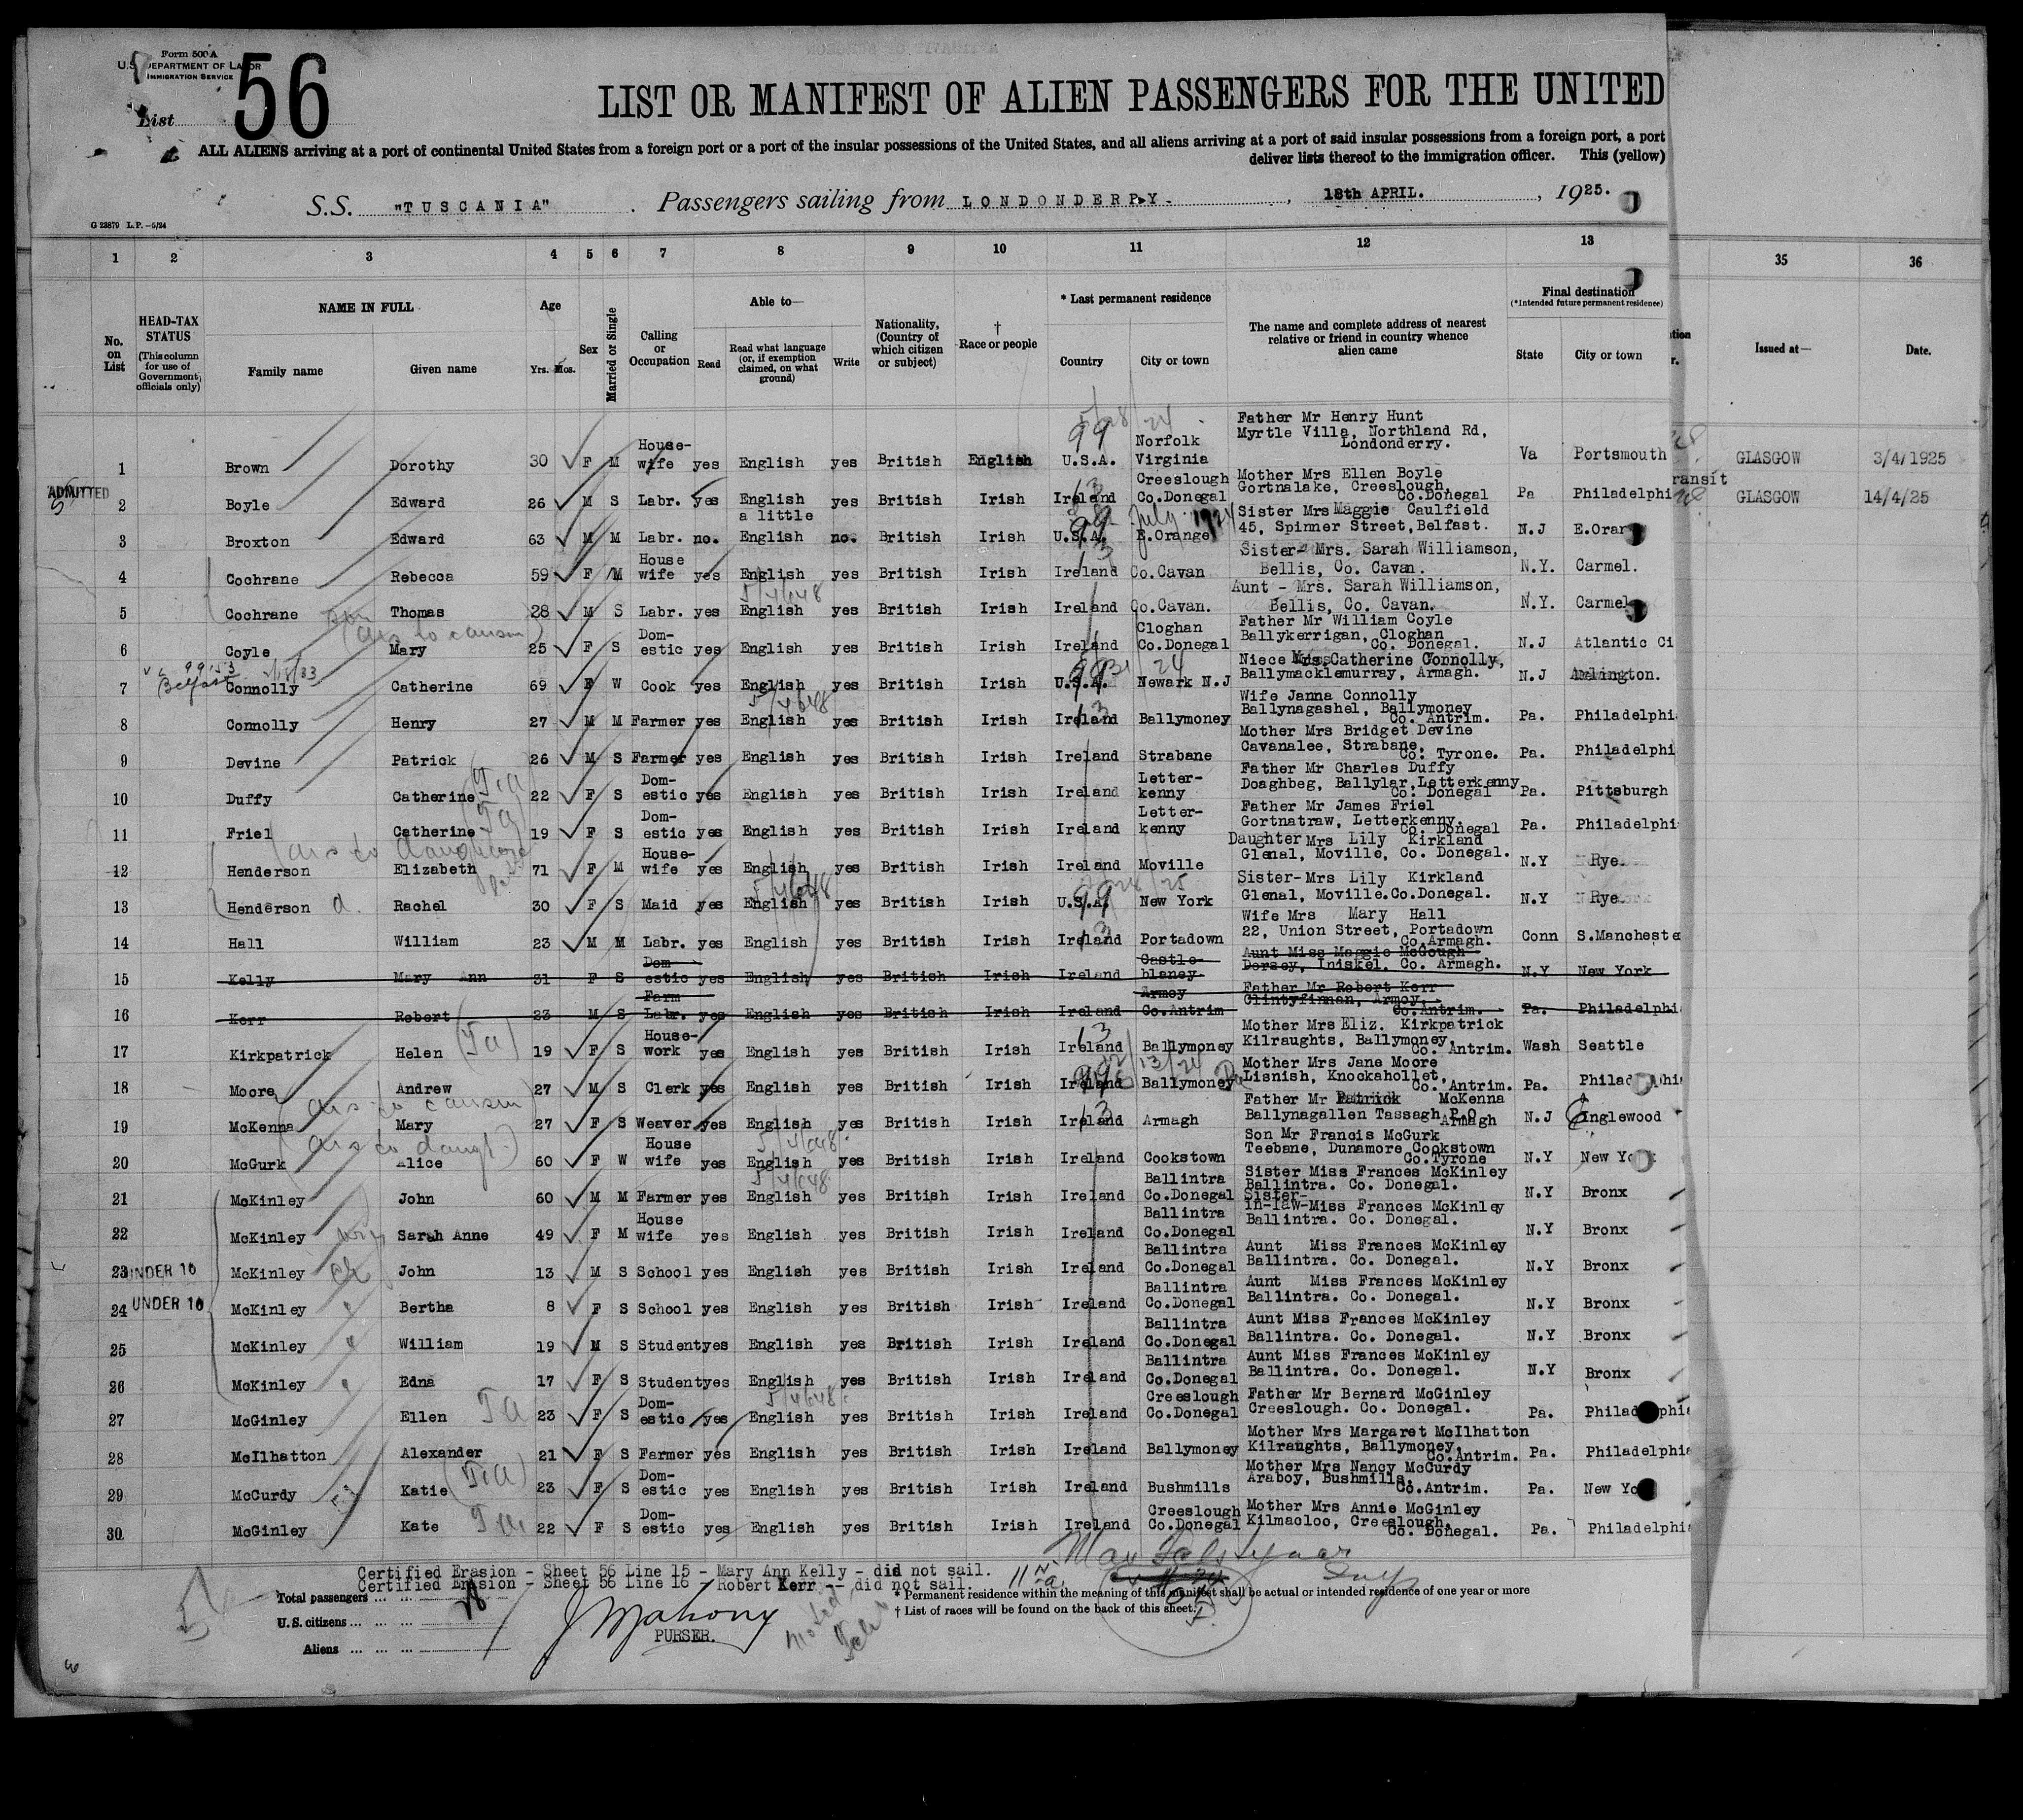 Form 500 A
U.S. DEPARTMENT OF LABOR
IMMIGRATION SERVICE
List 56
LIST OR MANIFEST OF ALIEN PASSENGERS FOR THE UNITED
ALL ALIENS arriving at a port of continental United States from a foreign port or a port of the insular possessions of the United States, and all aliens arriving at a port of said insular possessions from a foreign port, a port
deliver lists thereof to the immigration officer. This (yellow)
S.S. "TUSCANIA" Passengers sailing from LONDONDERRY. 18th APRIL. , 1925.
G 23879 L.P.-5/24
1 2 3 4 5 6 7 8 9 10 11 12 13 35 36
No. on List
HEAD-TAX STATUS (This column for use of Government officials only)
NAME IN FULL
Family name Given name
Age Yrs. Mos.
Sex
Married or Single
Calling or Occupation
Able to—
Read Read what language (or, if exemption claimed, on what ground) Write
Nationality, (Country of which citizen or subject)
† Race or people
* Last permanent residence
Country City or town
The name and complete address of nearest relative or friend in country whence alien came
Final destination (*Intended future permanent residence)
State City or town
Issued at— Date.
1 Brown Dorothy 30 F M House-wife yes English yes British English 99 U.S.A. Norfolk Virginia Father Mr Henry Hunt Myrtle Villa, Northland Rd, Londonderry. Va Portsmouth GLASGOW 3/4/1925
ADMITTED
2 Boyle Edward 26 M S Labr. yes English yes British Irish Ireland Creeslough Co.Donegal Mother Mrs Ellen Boyle Gortnalake, Creeslough, Co.Donegal Pa Philadelphi ransit GLASGOW 14/4/25
3 Broxton Edward 63 M M Labr. no. a little English no. British Irish 99 U.S.A. July 1924 E.Orange Sister Mrs Maggie Caulfield 45, Spinner Street, Belfast. N.J E.Oran
4 Cochrane Rebecca 59 F M House wife yes English yes British Irish Ireland Co.Cavan Sister- Mrs. Sarah Williamson, Bellis, Co. Cavan. N.Y. Carmel.
5 Cochrane son Thomas 28 M S Labr. yes English yes British Irish Ireland Co.Cavan. Aunt - Mrs. Sarah Williamson, Bellis, Co. Cavan. N.Y. Carmel
6 Coyle Mary 25 F S Dom-estic yes English yes British Irish Ireland Cloghan Co.Donegal Father Mr William Coyle Ballykerrigan, Cloghan Co. Donegal. N.J Atlantic Ci
7 Connolly Catherine 69 F W Cook yes English yes British Irish U.S.A. Newark N.J Niece Mrs. Catherine Connolly, Ballymacklemurray, Armagh. N.J Arlington.
8 Connolly Henry 27 M M Farmer yes English yes British Irish Ireland Ballymoney Wife Janna Connolly Ballynagashel, Ballymoney Co. Antrim. Pa. Philadelphi
9 Devine Patrick 26 M S Farmer yes English yes British Irish Ireland Strabane Mother Mrs Bridget Devine Cavanalee, Strabane, Co. Tyrone. Pa. Philadelphi
10 Duffy Catherine 22 F S Dom-estic yes English yes British Irish Ireland Letter-kenny Father Mr Charles Duffy Doaghbeg, Ballylar, Letterkenny Co. Donegal Pa. Pittsburgh
11 Friel Catherine 19 F S Dom-estic yes English yes British Irish Ireland Letter-kenny Father Mr James Friel Gortnatraw, Letterkenny. Co. Donegal Pa. Philadelphi
12 Henderson Elizabeth 71 F M House-wife yes English yes British Irish Ireland Moville Daughter Mrs Lily Kirkland Glenal, Moville, Co. Donegal. N.Y Rye.
13 Henderson d. Rachel 30 F S Maid yes English yes British Irish 99 U.S.A. New York Sister-Mrs Lily Kirkland Glenal, Moville.Co.Donegal. N.Y Rye
14 Hall William 23 M M Labr. yes English yes British Irish Ireland Portadown Wife Mrs Mary Hall 22, Union Street, Portadown Co.Armagh. Conn S.Mancheste
15 Kelly Mary Ann 31 F S Dom-estic yes English yes British Irish Ireland Castle-blaney Aunt Miss Maggie McGough Dorsey, Iniskel. Co. Armagh. N.Y New York
16 Kerr Robert 23 M S Farm Labr. yes English yes British Irish Ireland Armoy Co.Antrim Father Mr Robert Kerr Clintyfinnan, Armoy, Co.Antrim. Pa. Philadelphi
17 Kirkpatrick Helen 19 F S House-work yes English yes British Irish Ireland Ballymoney Mother Mrs Eliz. Kirkpatrick Kilraughts, Ballymoney, Co. Antrim. Wash Seattle
18 Moore Andrew 27 M S Clerk yes English yes British Irish Ireland Ballymoney Mother Mrs Jane Moore Lisnish, Knockahollet, Co. Antrim. Pa. Philadelphi
19 McKenna Mary 27 F S Weaver yes English yes British Irish Ireland Armagh Father Mr Patrick McKenna Ballynagallen Tassagh P.O Armagh N.J Englewood
20 McGurk Alice 60 F W House wife yes English yes British Irish Ireland Cookstown Son Mr Francis McGurk Teebane, Dunamore Cookstown Co.Tyrone N.Y New York
21 McKinley John 60 M M Farmer yes English yes British Irish Ireland Ballintra Co.Donegal Sister Miss Frances McKinley Ballintra. Co. Donegal. N.Y Bronx
22 McKinley Sarah Anne 49 F M House wife yes English yes British Irish Ireland Ballintra Co.Donegal Sister-in-law-Miss Frances McKinley Ballintra. Co. Donegal. N.Y Bronx
23 UNDER 16 McKinley John 13 M S School yes English yes British Irish Ireland Ballintra Co.Donegal Aunt Miss Frances McKinley Ballintra. Co. Donegal. N.Y Bronx
24 UNDER 16 McKinley Bertha 8 F S School yes English yes British Irish Ireland Ballintra Co.Donegal Aunt Miss Frances McKinley Ballintra. Co. Donegal. N.Y Bronx
25 McKinley William 19 M S Student yes English yes British Irish Ireland Ballintra Co.Donegal Aunt Miss Frances McKinley Ballintra. Co. Donegal. N.Y Bronx
26 McKinley Edna 17 F S Student yes English yes British Irish Ireland Ballintra Co.Donegal Aunt Miss Frances McKinley Ballintra. Co. Donegal. N.Y Bronx
27 McGinley Ellen 23 F S Dom-estic yes English yes British Irish Ireland Creeslough Co.Donegal Father Mr Bernard McGinley Creeslough. Co. Donegal. Pa. Philadelphia
28 McIlhatton Alexander 21 F S Farmer yes English yes British Irish Ireland Ballymoney Mother Mrs Margaret McIlhatton Kilraughts, Ballymoney, Co.Antrim. Pa. Philadelphia
29 McCurdy Katie 23 F S Dom-estic yes English yes British Irish Ireland Bushmills Mother Mrs Nancy McCurdy Araboy, Bushmills, Co.Antrim. Pa. New Yo
30. McGinley Kate 22 F S Dom-estic yes English yes British Irish Ireland Creeslough Co.Donegal Mother Mrs Annie McGinley Kilmacloo, Creeslough, Co. Donegal. Pa. Philadelphia
Certified Erasion - Sheet 56 Line 15 - Mary Ann Kelly - did not sail.
Certified Erasion - Sheet 56 Line 16 - Robert Kerr -- did not sail.
Total passengers ... ...
U.S. citizens ... ... ...
Aliens ... ... ...
J Mahony
PURSER.
* Permanent residence within the meaning of this manifest shall be actual or intended residence of one year or more
† List of races will be found on the back of this sheet.